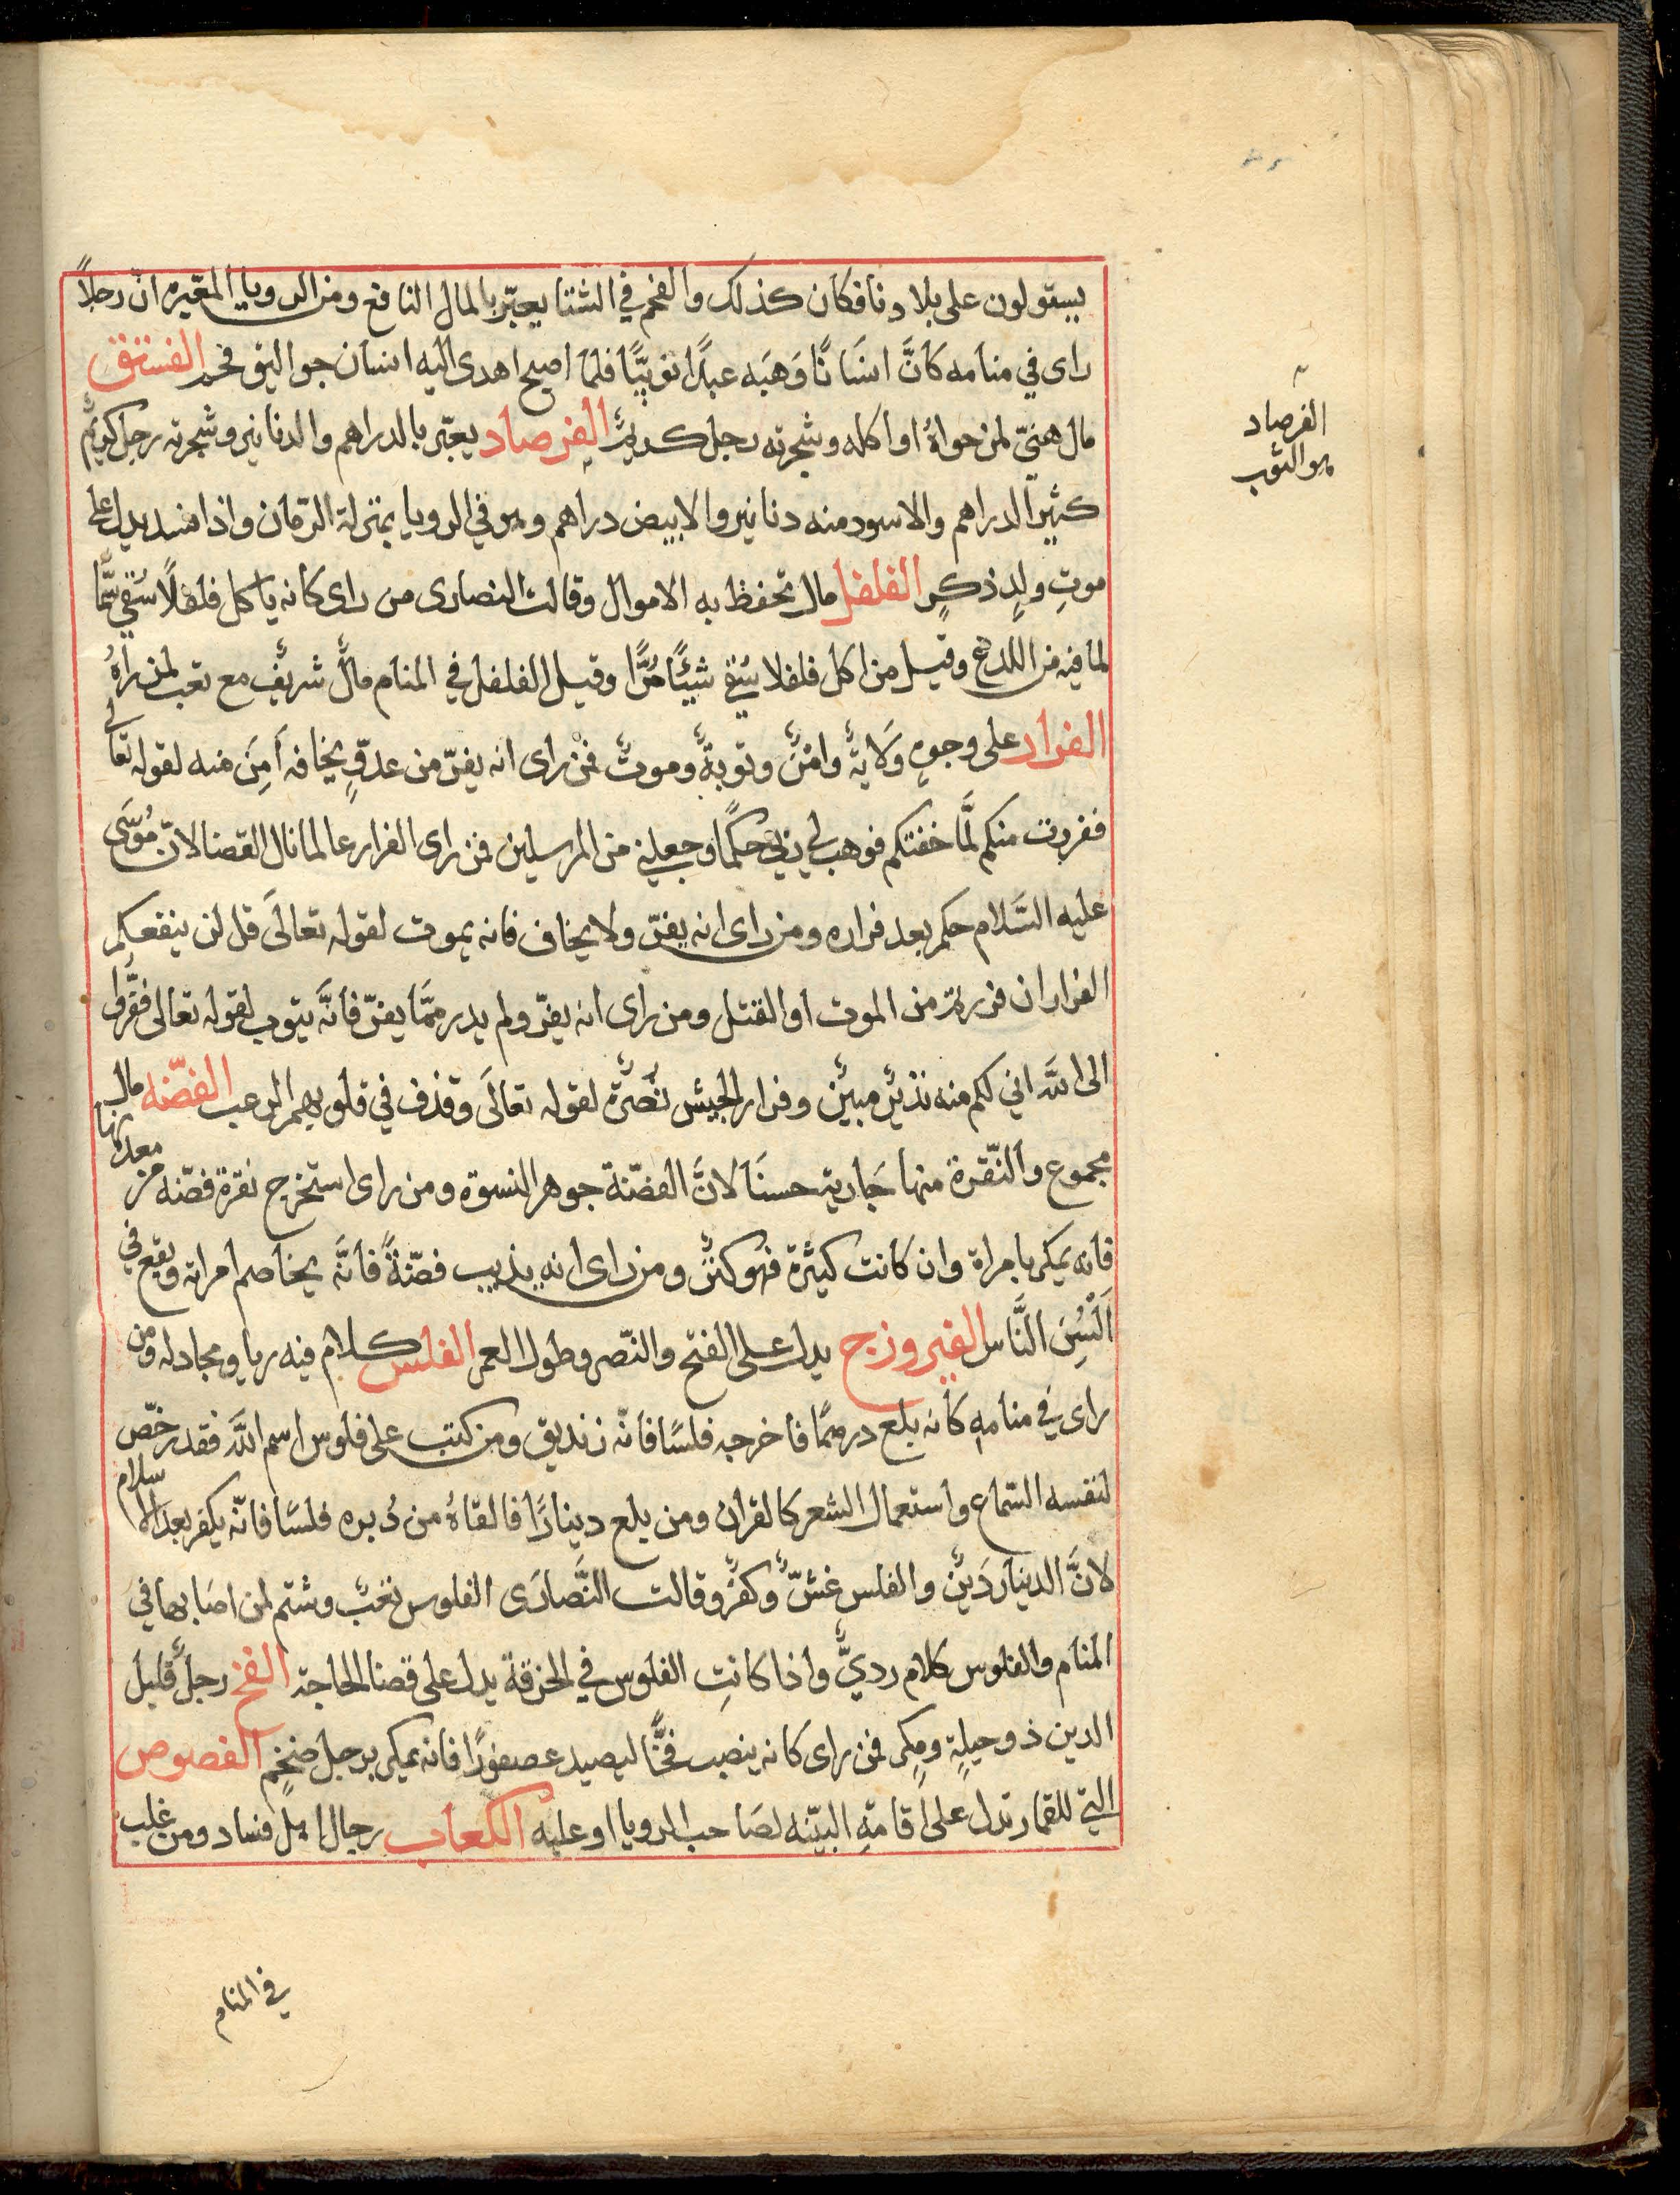 يستولون على بلادنا فكان كذلك والفحم في الشتا يعبّر بالمال النافع ومن الرويا المعبّره انّ رجلاً
راى في منامه كانَّ انسَانًا وَهَبَه عبدًا نوبيًّا فلمّا اصبح اهدى اليه انسان جواليق فحم الفستق
مال هنيّ لمن حواهُ او اكله وشجرته رجل كريمٌ الفرصاد يعبّر بالدراهم والدنانير وشجرته رجل كريمٌ
كثير الدراهم والاسود منه دنانير والابيض دراهم وهو في الرويا بمنزلة الرمّان واذا فسد يدل على
موتِ ولدٍ ذكرٍ الفلفل مال تحفظ به الاموال وقالت النصارى من راى كانه ياكل فلفلاً سُقي سمًّا
لما فيه من اللدغ وقيل من اكل فلفلا سُقي شيئًا مُرًّا وقيل الفلفل في المنام مالٌ شريفٌ مع تعب لمن راهُ
الفرار على وجوهٍ وَلايةٌ وامنٌ وتوبةٌ وموتٌ فمن راى انه يفرّ من عدوٍّ يخافه اَمِنَ منه لقوله تعالى
ففررت منكم لَّما خفتكم فوهب لي ربّي حكمًا وجعلني من المرسلين فمن راى الفرار عالما نال القضا لانّ مُوسَى
عليه السَّلام حكم بعد فراره ومن راى انه يفرّ ولا يخاف فانه يموت لقوله تعالَى قل لن ينفعكم
الفرار ان فررتم من الموت او القتل ومن راى انه يفرّ ولم يدر ممَّا يفرّ فانَّه يتوب لقوله تعالى ففرُّوا
الى اللَّه اني لكم منه نذيرٌ مبينٌ وفرار الجيش نُصرةٌ لقوله تعالَى وقذف في قلوبهم الرعب الفضّه مال
مجموع والنّقرة منها جَارية حسنَا لانَّ الفضّة جوهر النسوة ومن راى استخرج نقرة فضّه من معدنها
فانه يمكر بامراة وان كانت كثيرة فهو كنزٌ ومن راى انه يذيب فضّةً فانَّه يخاصم امراته ويقع في
اَلْسُنِ النَّاس الفيروزج يدل على الفتح والنّصر وطول العمر الفلس كلام فيه ريا ومجادله ومن
راى في منامه كانه بلع درهمًا فاخرجه فلسًا فانّه زنديق ومن كتب على فلوس اسم اللَّه فقد رخّص
لنفسه السّماع واستعمال الشعر كالقران ومن بلع دينارًا فالقاهُ من دُبره فلسًا فانّه يكفر بعد الاسلام
لانَّ الدينار دَينٌ والفلس غشٌّ وكفرٌ وقالت النَّصارَى الفلوس تعبٌ وشتم لمن اصَابها في
المنام والفلوس كلام رديٌّ واذا كانتِ الفلوس في الخرقة يدل على قضا الحاجة الفخ رجلٌ قليل
الدين ذو حيلةٍ ومكرٍ فمن راى كانه ينصب فخًّا ليصيد عصفورًا فانه يمكر برجل ضخمٍ الفصوص
التي للقمار تدل على اقامةِ البيّنه لصَاحب الرويا او عليه الكعاب رجال اهل فساد ومن غلب
في المنام
الفرصاد
هو التوت